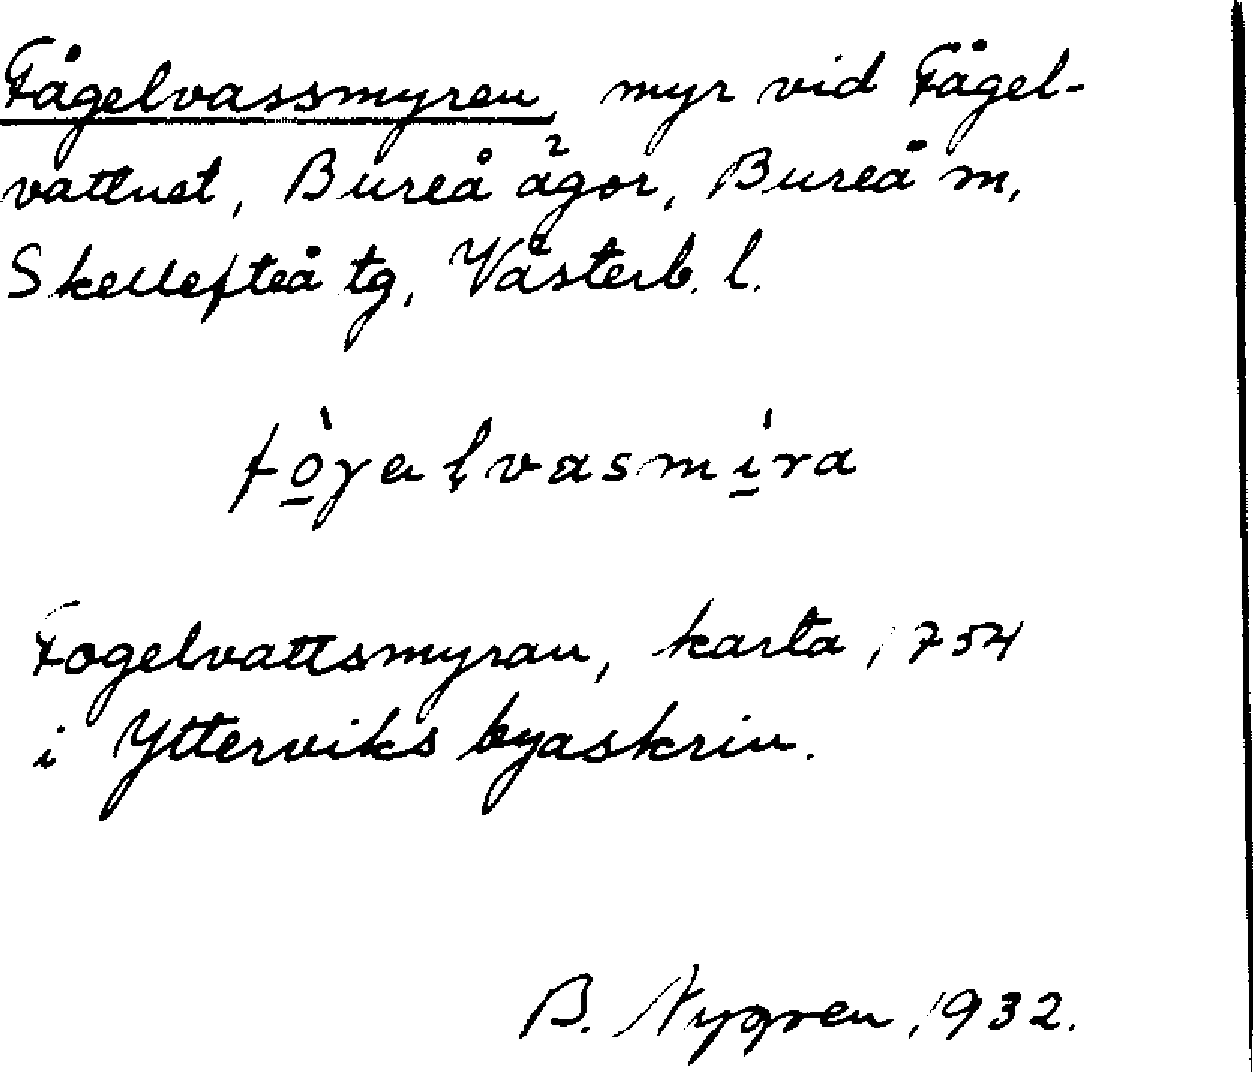 Fågelvassmyren, myr vid Fågel-
vattnet, Bureå ägor, Bureå m,
Skellefteå tg, Västerb. l.
fò̲γalvasmí̲ra
Fogelvattsmyran, karta 1754
i Ytterviks byaskrin.
B. Nygren 1932.